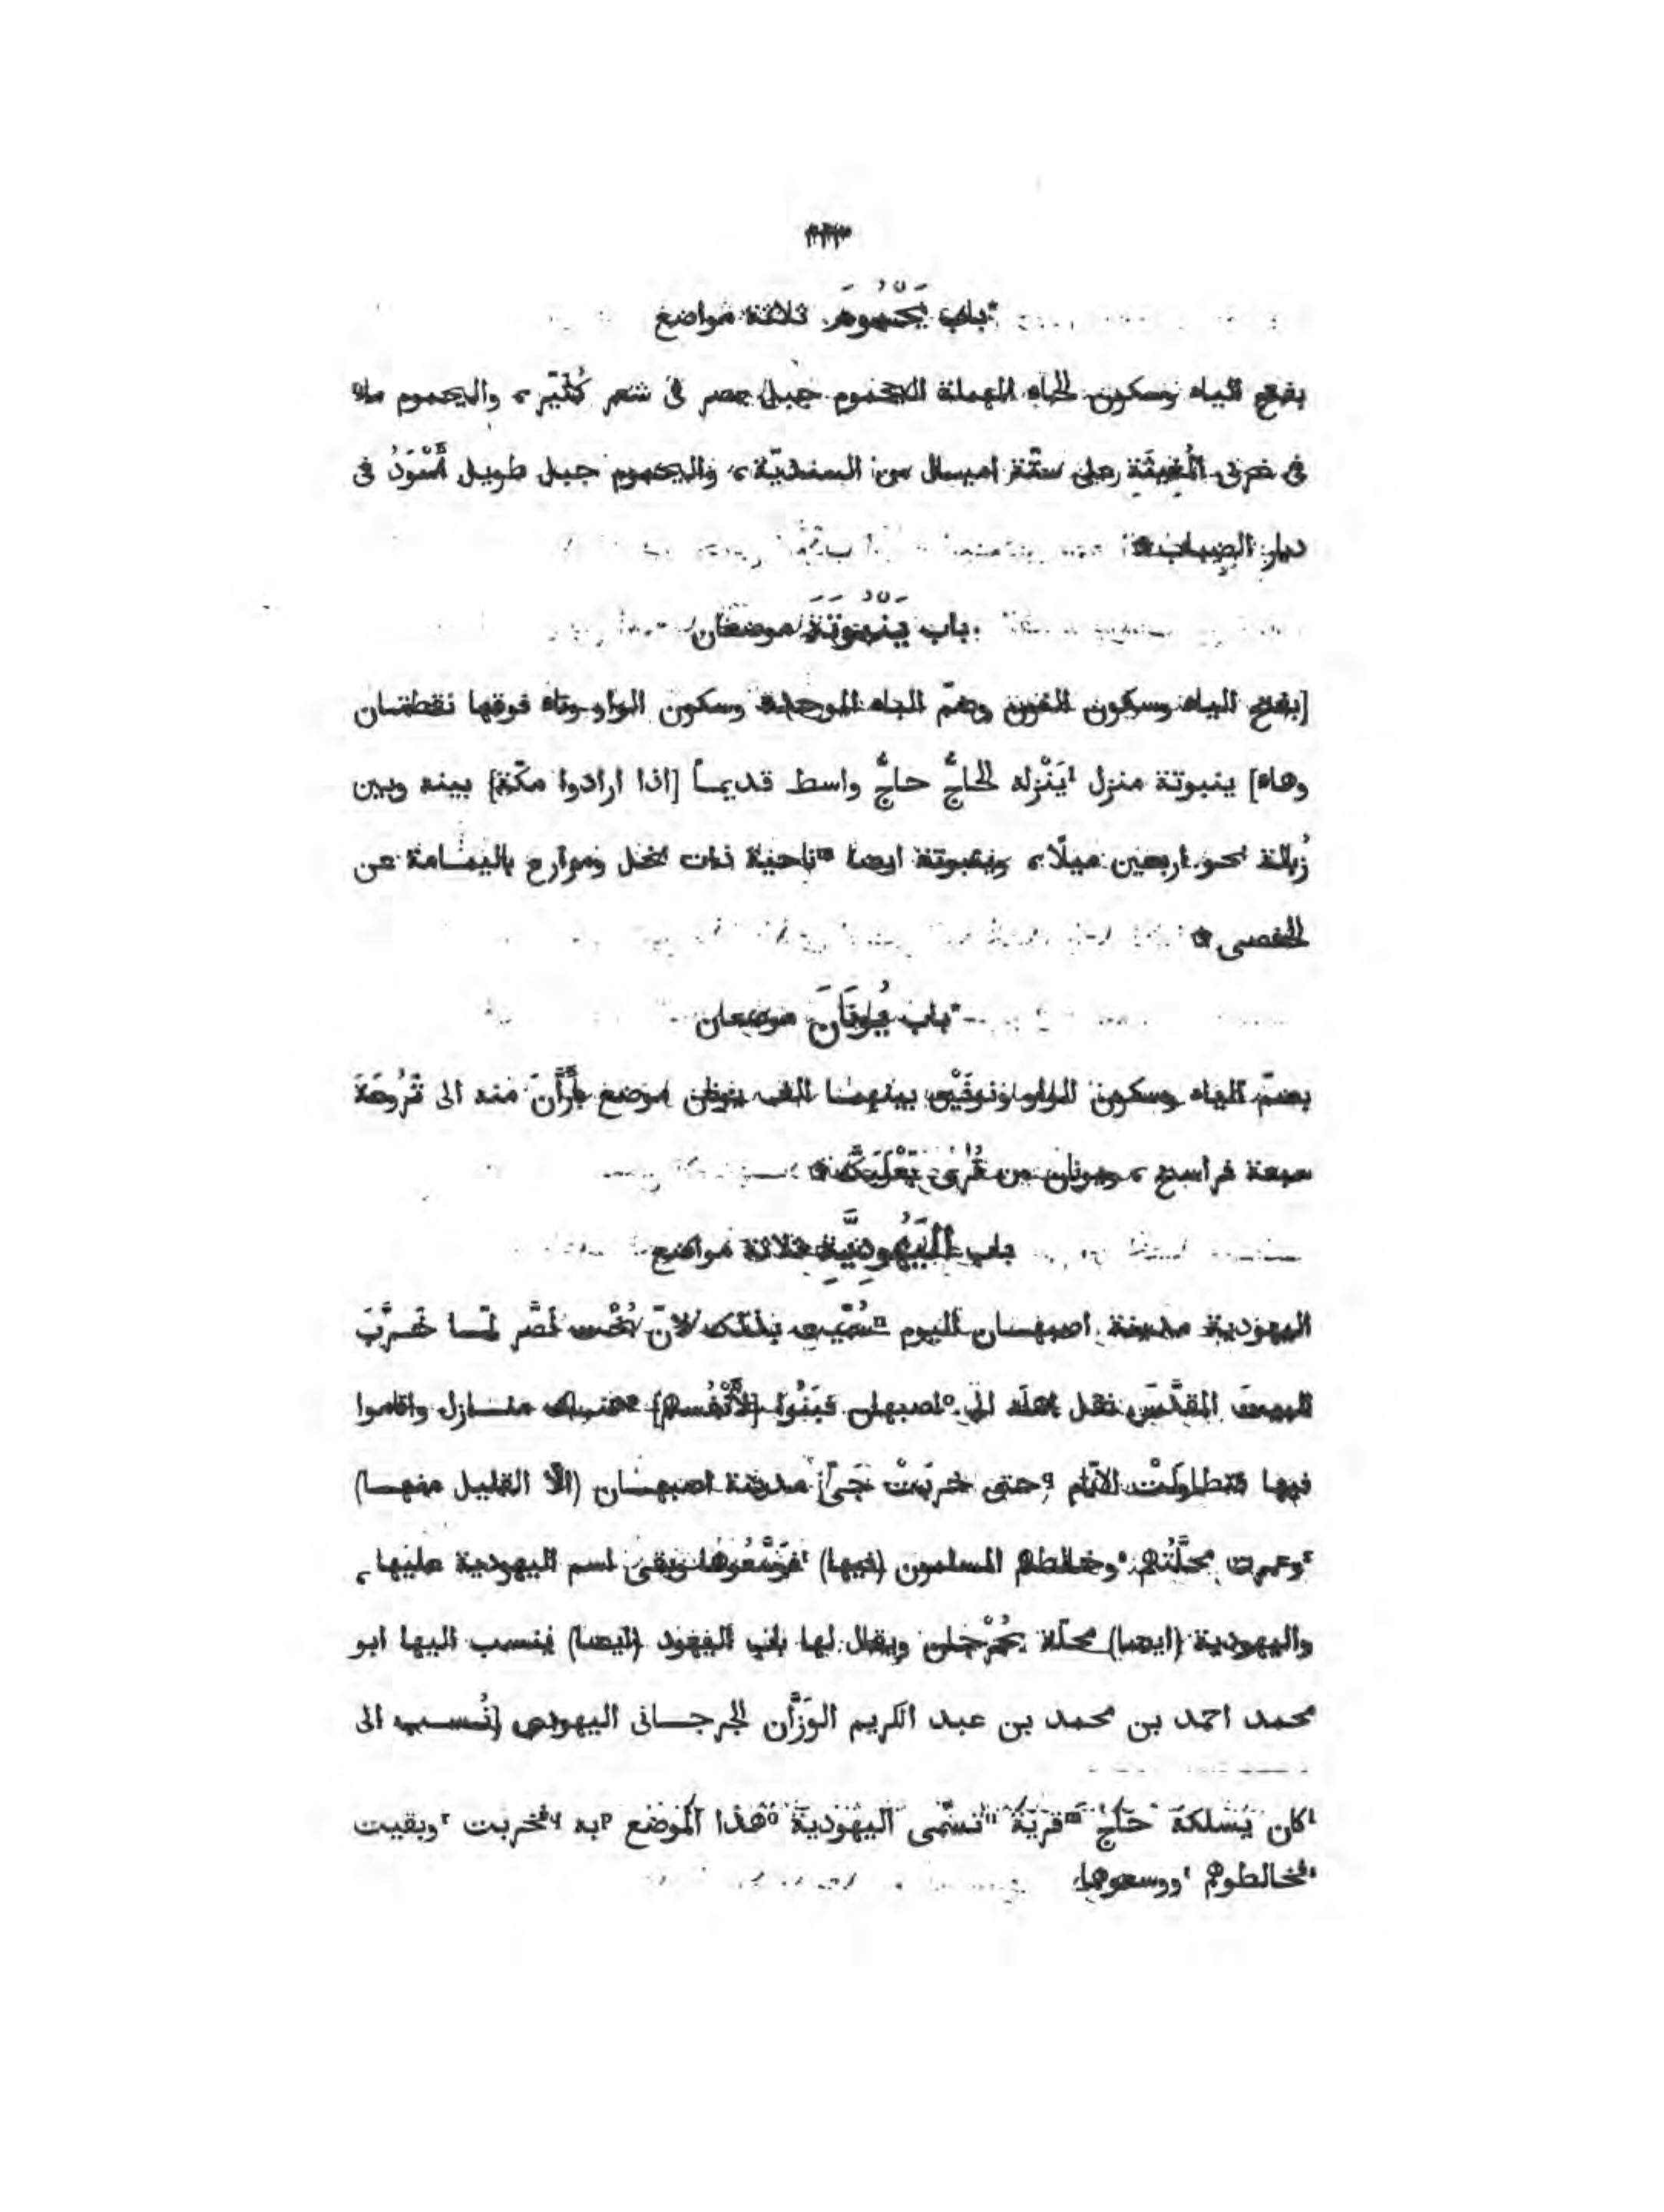 *باب يَحْمُومَ ثلاثة مواضع
بفتح الياء وسكون الحاء المهملة اليحموم جبل بمصر فى شعر كُثَيِّر، واليحموم ماء
فى غربى المُغِيثَةِ على ستّة اميال من السنديّة، واليحموم جبل طويل أَسْوَدُ فى
ديار الضِباب*
باب يَنْبُوتَةَ موضعان
[بفتح الياء وسكون النون وضمّ الباء الموحدة وسكون الواو وتاء فوقها نقطتان
وهاء] ينبوتة منزل ¹يَنْزِله الحاجُّ حاجُّ واسط قديماً [اذا ارادوا مكّة] بينه وبين
زُبالة نحو اربعين ميلًا، وينبوتة ايضا ᵐناحية ذات نخل ومزارع باليمامة عن
الحفصى*
*باب يُونَانَ موضعان
بضمّ الياء وسكون الواو ونونَيْن بينهما الف يونان موضع بأَرَّانَ منه الى
سبعة فراسخ، ويونان من قُرَى بَعْلَبَكَّ*
باب اليَهُودِيَّةِ ثلاثة مواضع
اليهودية مدينة اصبهان اليوم ⁿسُمِّيت بذلك لانّ بُخْت نَصَّر لمّا خَرَّبَ
البيت المقدَّس نقل اهله الى ᵒاصبهان فبَنُوا [لأَنْفُسهم] هناك منازل واقاموا
فيها فتطاولَتْ الايّام ᑫحتى خربَتْ جَىّ مدينة اصبهان (الّا القليل منها)
ʳوعمرت محلَّتُهم ˢوخالطهم المسلمون (فيها) ᵗفوَسَّعُوها وبقى اسم اليهودية عليها،
واليهودية (ايضا) محلّة بجُرْجان ويقال لها باب اليهود (ايضا) ينسب اليها ابو
محمد احمد بن محمد بن عبد الكريم الوَزَّان الجرجانى اليهودى [نُسب الى
¹كان يَسْلكه حَاجُّ ᵐقرية ⁿتسمّى اليهودية ᵒهذا الموضع ᵖبه ᑫفخربت ʳوبقيت
ˢفخالطوهم ᵗووسعوها